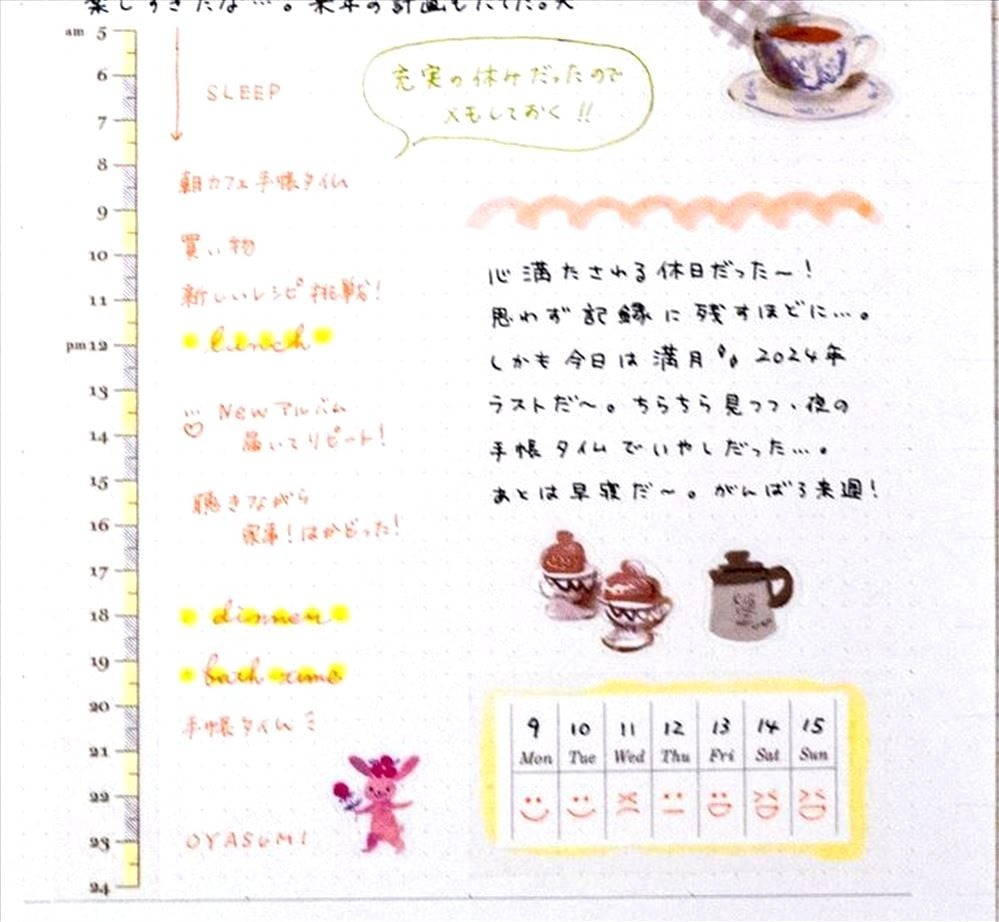 楽しすぎたな…。来年の計画もたてた。
am 5
6
7
8
9
10
11
pm 12
13
14
15
16
17
18
19
20
21
22
23
24
SLEEP
朝カフェ手帳タイム
買い物
新しいレシピ挑戦!
lunch
Newアルバム
届いてリピート!
聴きながら
家事!はかどった!
dinner
bath time
手帳タイム
OYASUMI
充実の休みだったので
メモしておく!!
心満たされる休日だった〜!
思わず記録に残すほどに…。
しかも今日は満月 2024年
ラストだ〜。ちらちら見つつ、夜の
手帳タイムでいやしだった…。
あとは早寝だ〜。がんばろ来週!
9 10 11 12 13 14 15
Mon Tue Wed Thu Fri Sat Sun